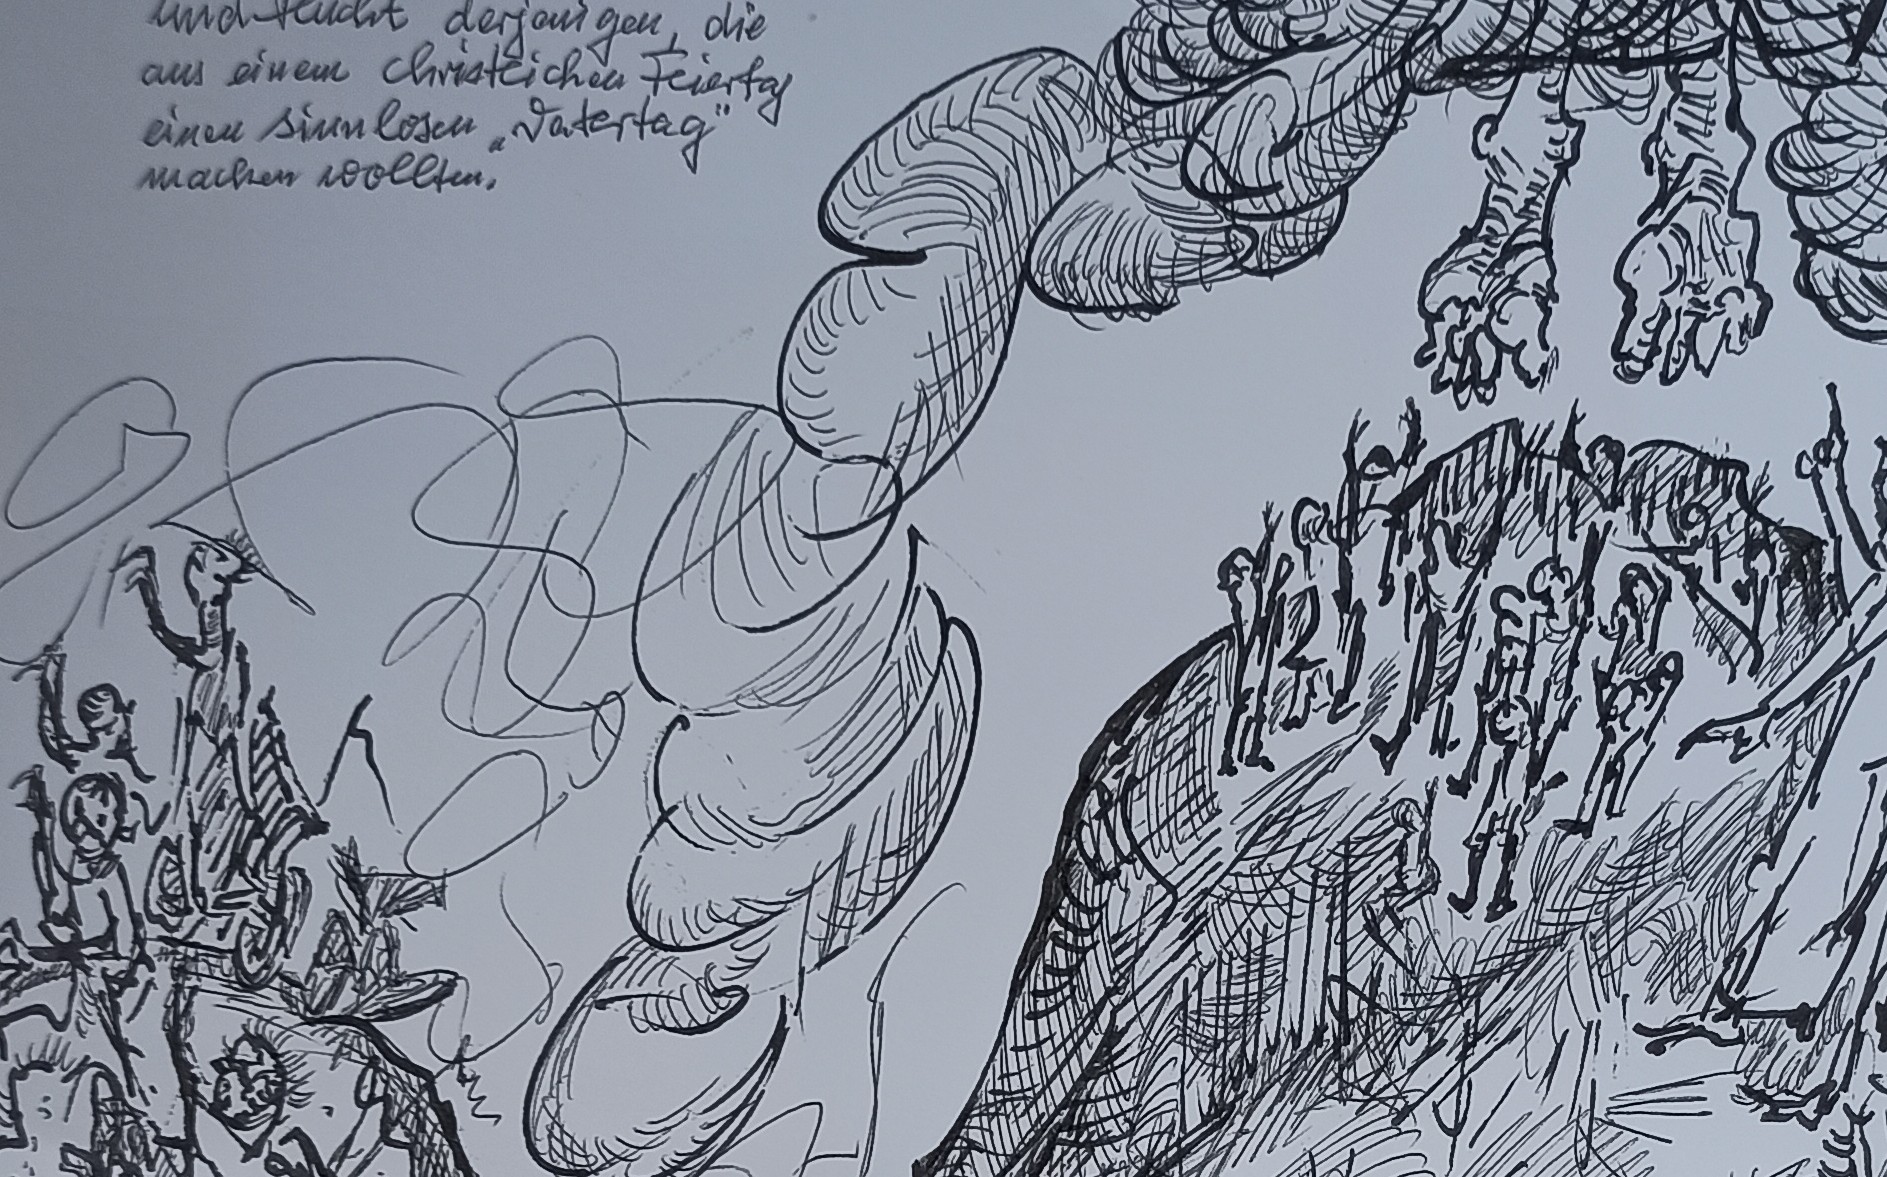 und Flucht derjenigen, die
aus einem christlichen Feiertag
einen sinnlosen „Vatertag"
machen wollten.